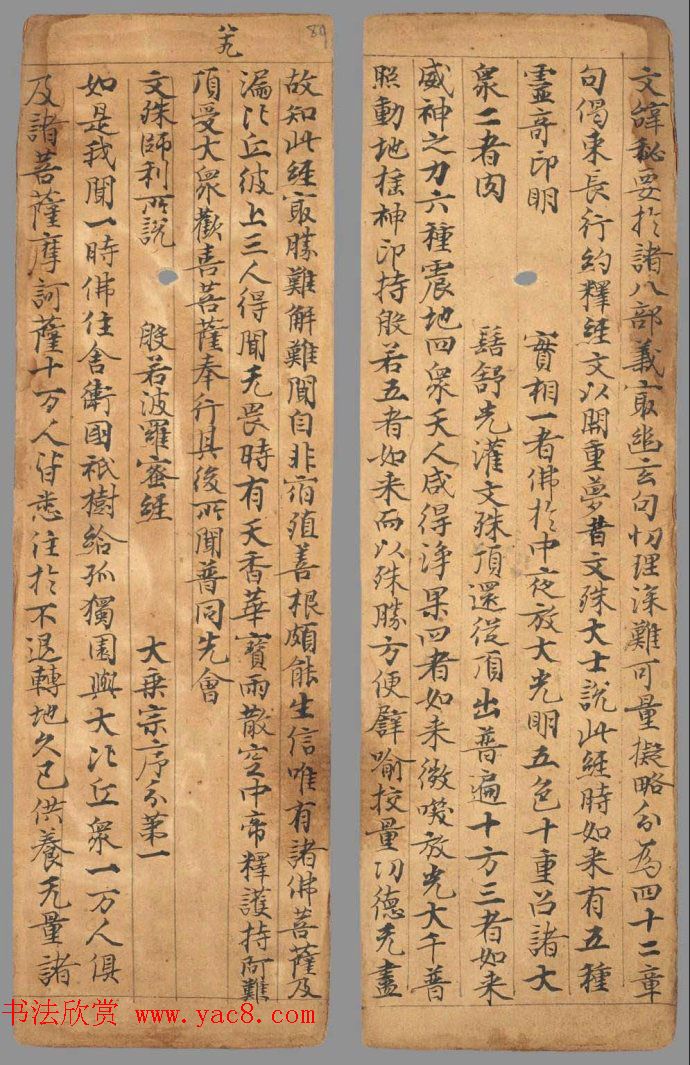 文緯秘要於諸八部義寂幽玄句切理深難可量擬略分為四十二章
句偈束長行約釋經文以開重夢昔文殊大士說此經時如來有五種
靈奇印明 實相一者佛於中夜放大光明五色十重召諸大
衆二者肉 髻舒光灌文殊頂還從頂出普遍十方三者如來
威神之力六種震地四衆天人咸得淨果四者如來微喚放光大千普
照動地搖神印持般若五者如来而以殊勝方便劈喻挍量功德无盡
芖
89
故知此經寂勝難解難聞自非宿殖善根頗能生信唯有諸佛菩薩及
漏比丘彼上三人得聞无畏時有天香華寶雨散空中帝釋護持阿難
頂受大衆歡喜菩薩奉行其後所聞普同先會
文殊師利所說 般若波羅蜜經 大乘宗序分第一
如是我聞一時佛住舍衛國祇樹給孤獨園與大比丘衆一万人俱
及諸菩薩摩訶薩十万人皆悉住於不退轉地久已供養无量諸
书法欣赏 www.yac8.com